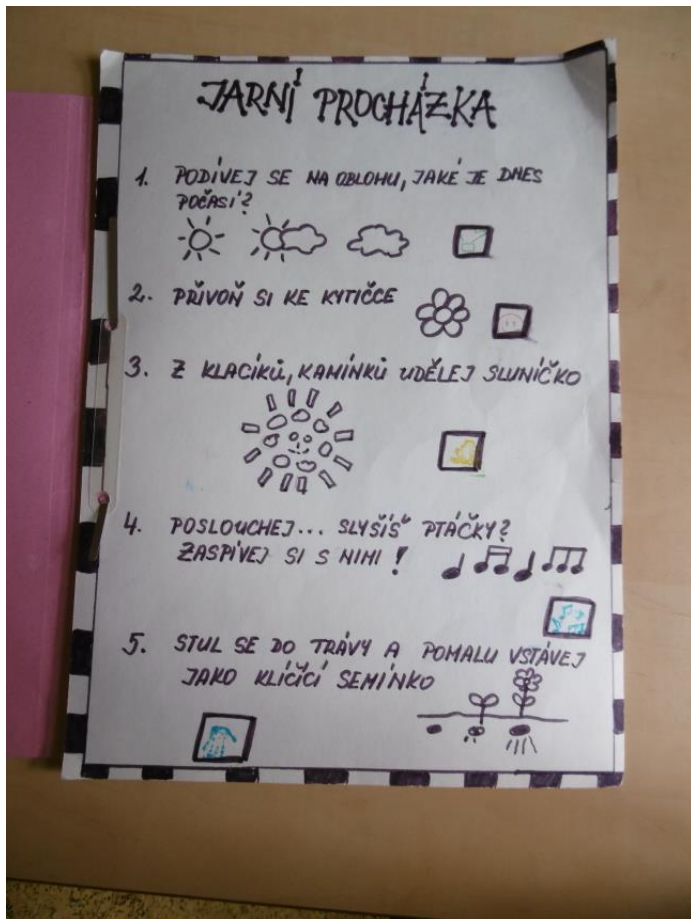 JARNÍ PROCHÁZKA
1. PODÍVEJ SE NA OBLOHU, JAKÉ JE DNES
POČASÍ?
2. PŘIVOŇ SI KE KYTIČCE
3. Z KLACÍKŮ, KAMÍNKŮ UDĚLEJ SLUNÍČKO
4. POSLOUCHEJ... SLYŠÍŠ PTÁČKY?
ZASPÍVEJ SI S NIMI!
5. STUL SE DO TRÁVY A POMALU VSTÁVEJ
JAKO KLÍČÍCÍ SEMÍNKO